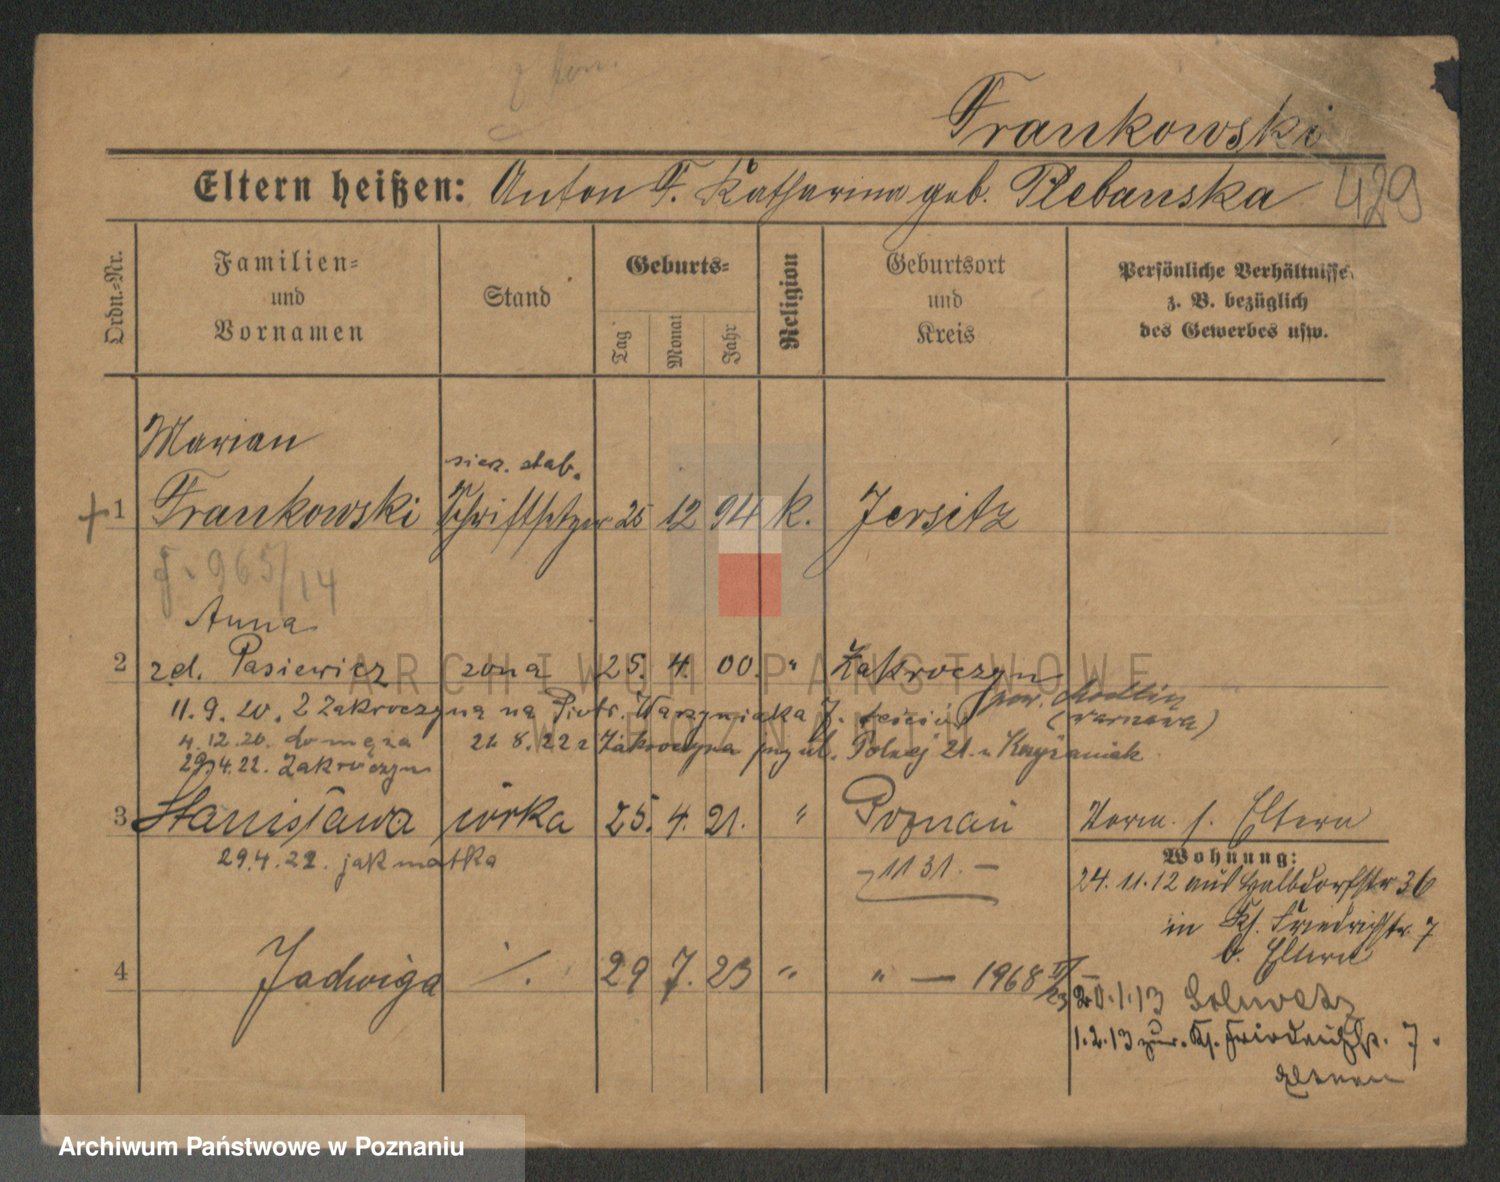 Frankowski
Eltern heißen: Anton F. Katharina geb. Plebanska 429
Ordn.-Nr.
Familien-
und
Vornamen
Stand
Geburts-
Tag
Monat
Jahr
Religion
Geburtsort
und
Kreis
Persönliche Verhältnisse
z. B. bezüglich
des Gewerbes usw.
Marian
sierż. sztab.
1 Frankowski Schriftsetzer 25 12 94 k. Jersitz
965/14
Anna
2 zd. Pasiewicz żona 25. 4. 00. " Zakroczyn
pow. Modlin
11.9.20. z Zakroczyna na Piotr. Wawrzyniaka
4.12.20. do męża 21.8.22 z Zakroczyna przy ul. Polnej 21.
29.4.22. Zakroczyn
3 Stanisława córka 25. 4. 21. " Poznań Norm. f. Eltern
29.4.22. jak matka
1131. —
Wohnung:
24.11.12 aus Halbdorfstr 36
in Kf. Friedrichstr. 7
b. Eltern
4 Jadwiga ./. 29 7. 23 " " — 1968 II/23 —
20.1.13
1.2.13 zur. Kf. Friedrichstr. 7.
Eltern
ARCHIWUM PAŃSTWOWE
W POZNANIU
Archiwum Państwowe w Poznaniu